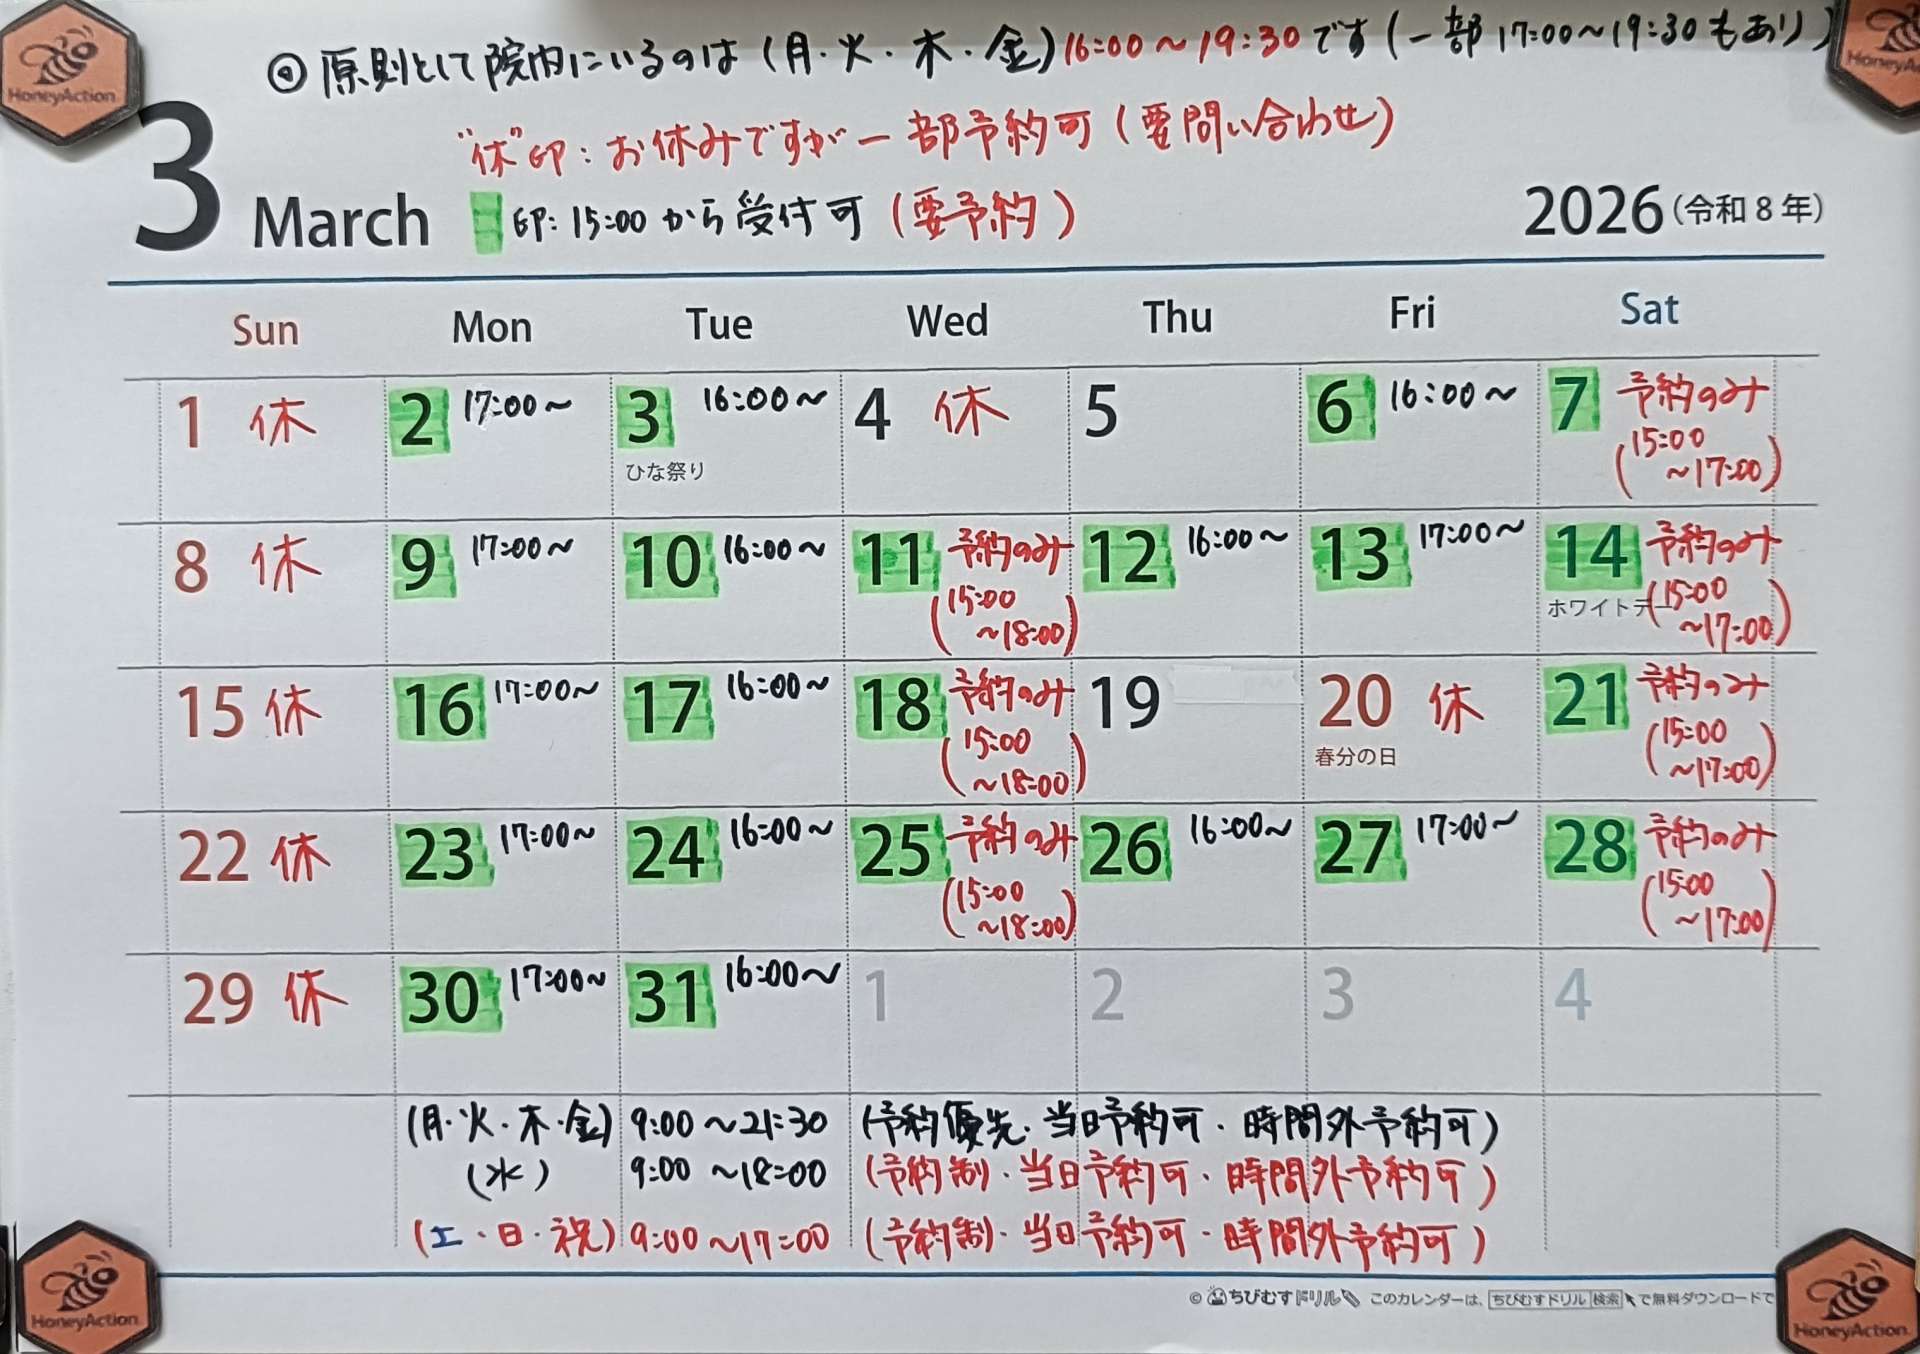 ◎原則として院内にいるのは(月・火・木・金)16:00〜19:30です(一部17:00〜19:30もあり)
"休"印:お休みですが一部予約可(要問い合わせ)
印:15:00から受付可(要予約)
3 March
2026(令和8年)
Sun Mon Tue Wed Thu Fri Sat
1 休 2 17:00〜 3 16:00〜 4 休 5 6 16:00〜 7 予約のみ
ひな祭り (15:00
〜17:00)
8 休 9 17:00〜 10 16:00〜 11 予約のみ 12 16:00〜 13 17:00〜 14 予約のみ
(15:00 ホワイトデー (15:00
〜18:00) 〜17:00)
15 休 16 17:00〜 17 16:00〜 18 予約のみ 19 20 休 21 予約のみ
(15:00 春分の日 (15:00
〜18:00) 〜17:00)
22 休 23 17:00〜 24 16:00〜 25 予約のみ 26 16:00〜 27 17:00〜 28 予約のみ
(15:00 (15:00
〜18:00) 〜17:00)
29 休 30 17:00〜 31 16:00〜 1 2 3 4
(月・火・木・金) 9:00〜21:30 (予約優先・当日予約可・時間外予約可)
(水) 9:00〜18:00 (予約制・当日予約可・時間外予約可)
(土・日・祝) 9:00〜17:00 (予約制・当日予約可・時間外予約可)
© ちびむすドリル このカレンダーは、ちびむすドリル 検索 で無料ダウンロードで
HoneyAction
HoneyAction
HoneyAction
HoneyAction